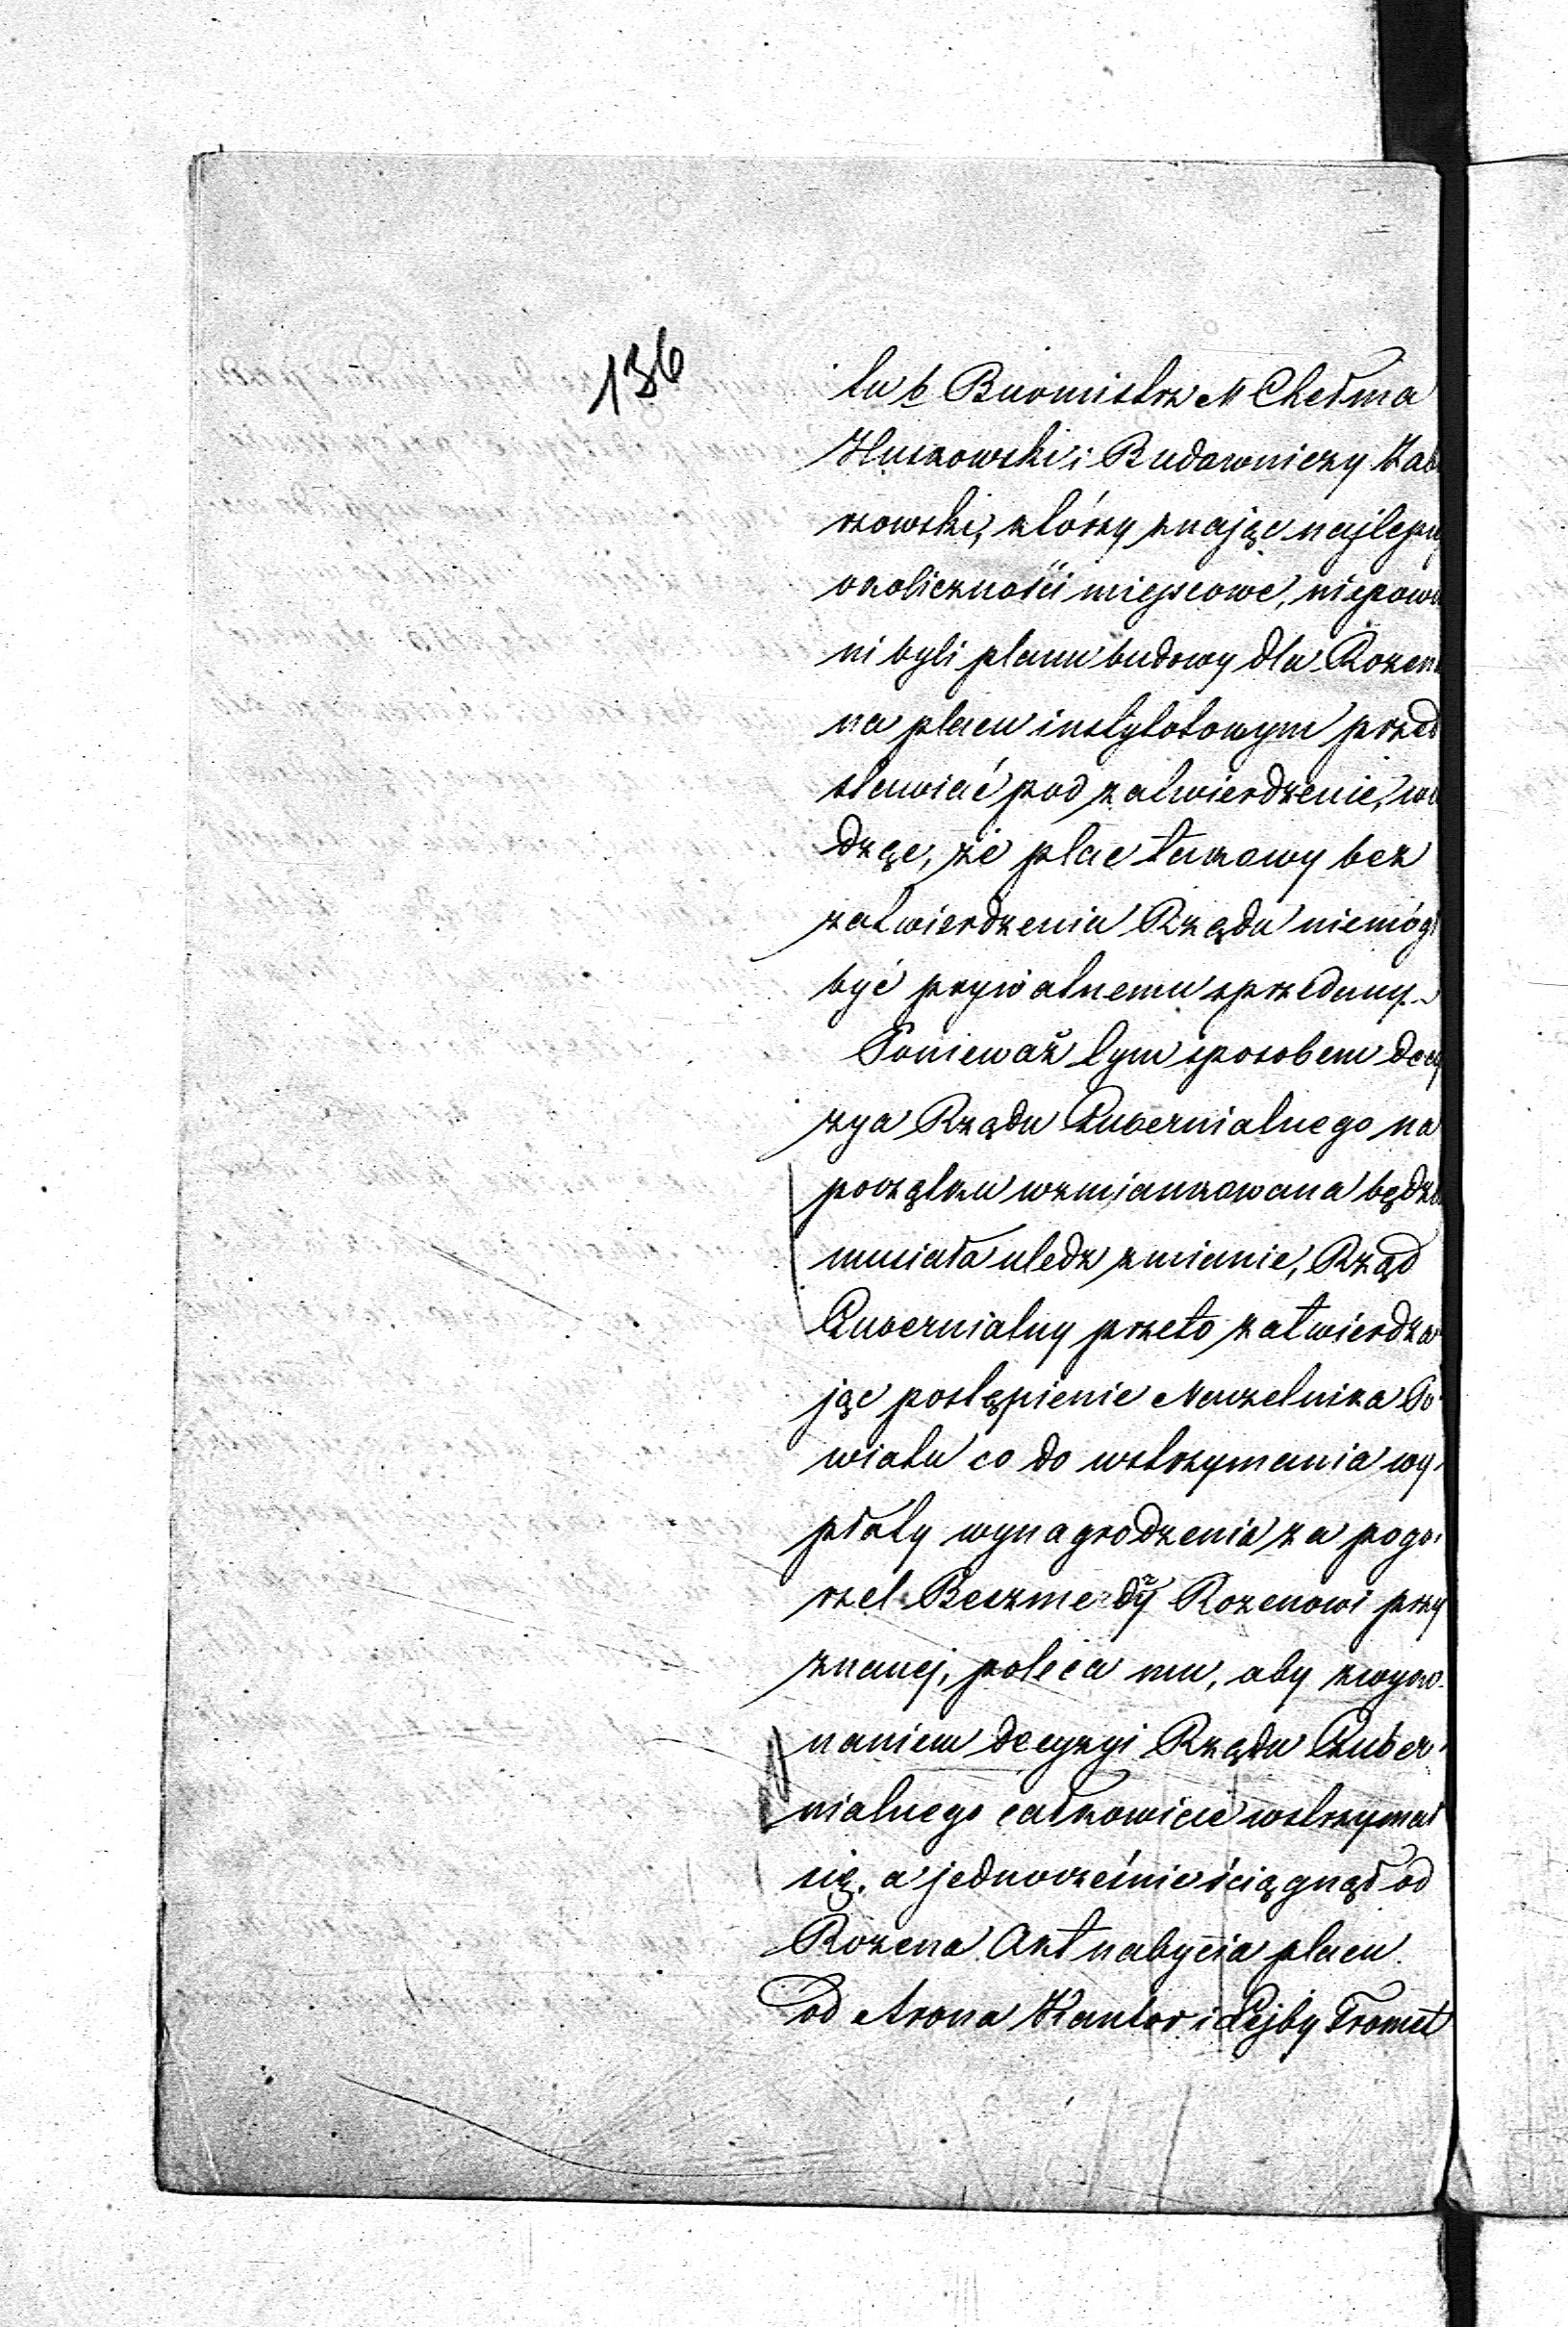 136
tu b Burmistrz M Chełma
Huskowski i Budowniczy Zab
rzowski, którzy znając najlepiej
okoliczności miejscowe, niepowin
ni byli planu budowy dla Rozena
na placu instytutowym przed
stawiać pod zatwierdzenie, wie
dząc, że plac takowy bez
zatwierdzenia Rządu niemógł
być prywatnemu sprzedany.
Ponieważ tym sposobem decy
zya Rządu Gubernialnego na
początku wzmiankowana będzie
musiała uledz zmianie, Rząd
Gubernialny przeto zatwierdza
jąc postąpienie Naczelnika Po
wiatu co do wstrzymania wy
płaty wynagrodzenia za pogo
rzel Rozenowi przy
znanej, poleca mu, aby z wyko
naniem decyzyi Rządu Guber
nialnego całkowicie wstrzymał
się, a jednocześnie ściągnął od
Rozena Akt nabycia placu
od Arona Kantor i Lejby Tromet